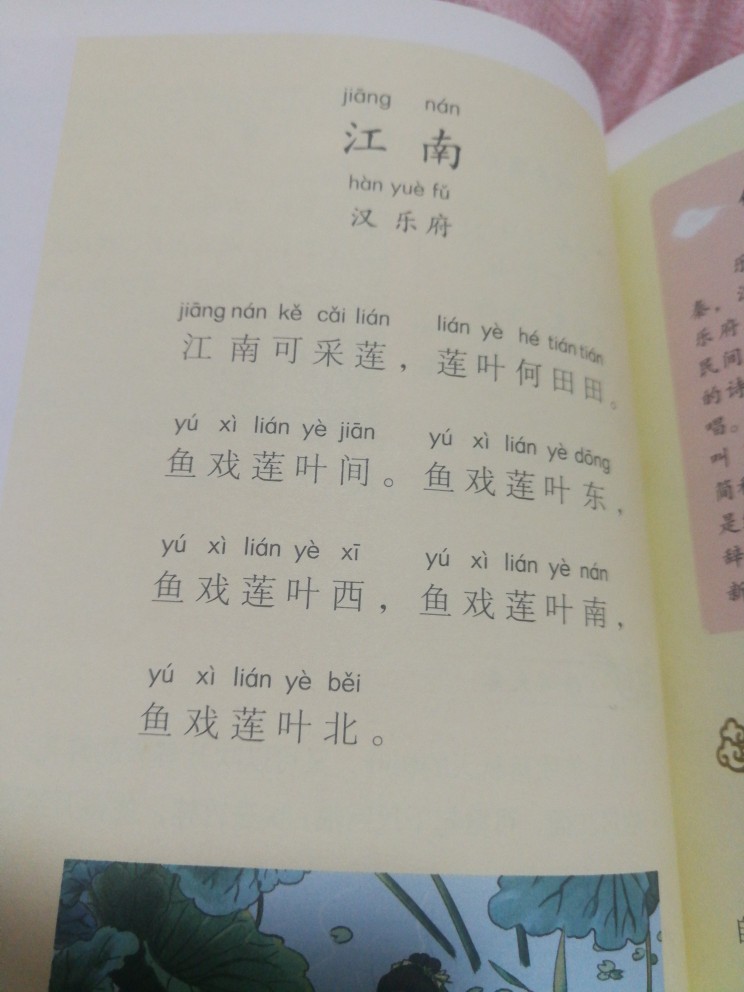 jiāng nán
江南
hàn yuè fǔ
汉乐府
jiāng nán kě cǎi lián lián yè hé tián tián
江南可采莲，莲叶何田田。
yú xì lián yè jiān yú xì lián yè dōng
鱼戏莲叶间。鱼戏莲叶东，
yú xì lián yè xī yú xì lián yè nán
鱼戏莲叶西，鱼戏莲叶南，
yú xì lián yè běi
鱼戏莲叶北。
秦，
乐府
民间
的诗
唱。
叫
简
是
辞
新